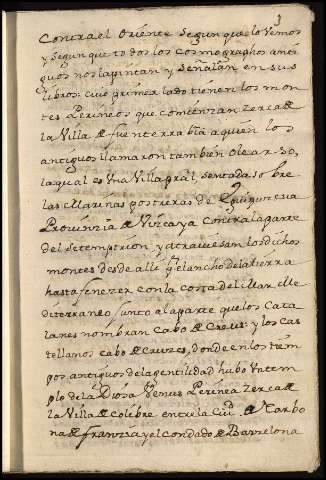 3
Contra el Oriente segun que lo Vemos
y segun que todos los cosmographos anti
guos nos la pintan y señalan en sus
libros: cuio primer lado tienen los mon
tes Perineos que comienzan zerca de
la Villa de fuenterrabia a quien los
antiguos llamaron tambien Olearso,
la qual es Vna Villa prãl sentada sobre
las Marinas postreras de
Provinzia de Vizcaya contra la parte
del Setemptrion y atraviesan los dichos
montes desde alli pr el ancho de la tierra
hasta fenezer con la costa del Mar Me
diterraneo Junto a la parte que los Cata
lanes nombran Cabo de Creus: y los cas
tellanos cabo de Cruzes, donde en los tiem
pos antiguos de la gentilidad hubo Vn tem
plo de la Diosa Venus Perinea zerca de
la Villa de Colibre entre la Ciud. de Narbo
na de franzia y el condado de Barzelona